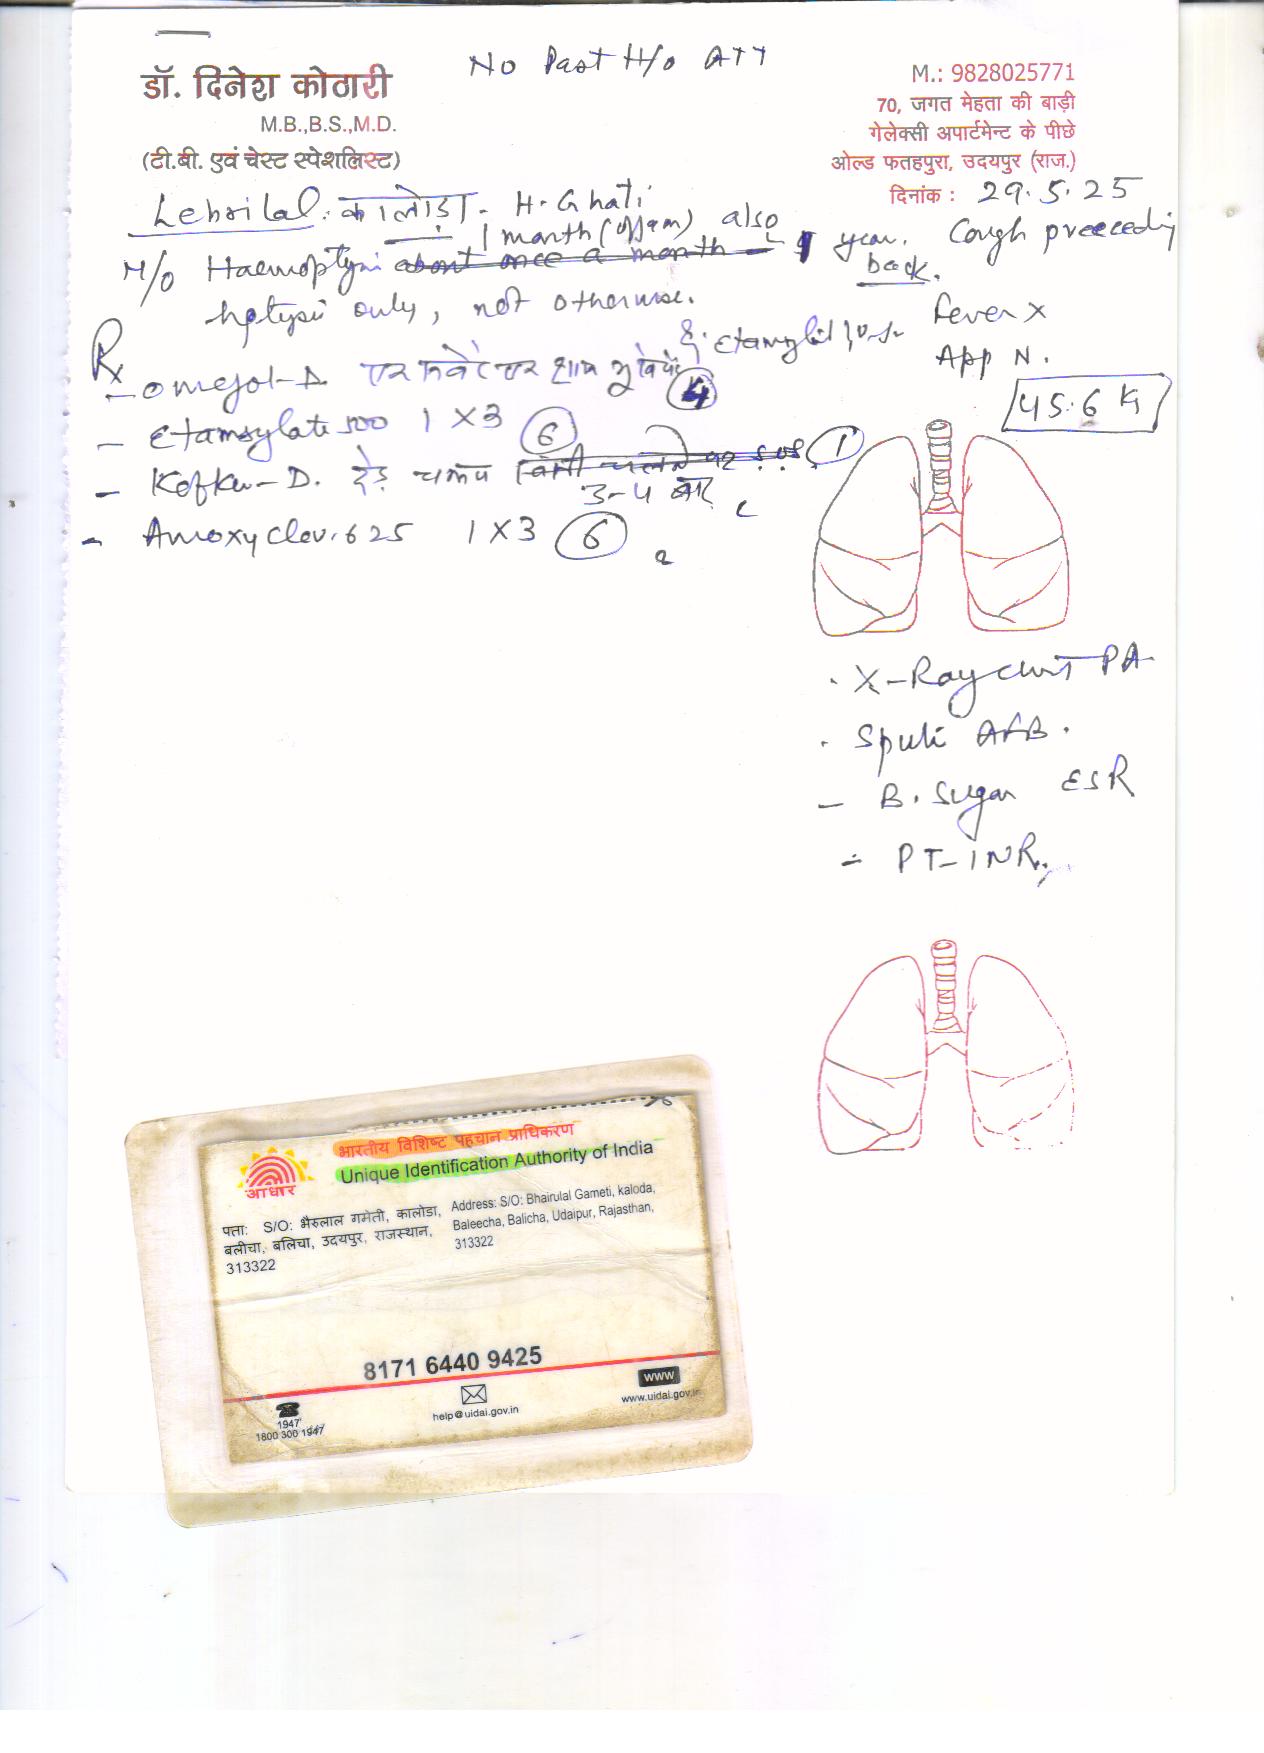 No Past H/o ATT
डॉ. दिनेश कोठारी
M.B.,B.S.,M.D.
(टी.बी. एवं चेस्ट स्पेशलिस्ट)
M.: 9828025771
70, जगत मेहता की बाड़ी
गेलेक्सी अपार्टमेन्ट के पीछे
ओल्ड फतहपुरा, उदयपुर (राज.)
दिनांक : 29.5.25
Lehrilal. कालोडा. H. Ghati
1 month also
H/o Haemoptysis about once a month 1 year. Cough preeceding
back.
hptysis only, not otherwise.
Fever X
App N.
Rx
- Omejol-D एक सवेरे एक शाम भूखे पेट & Etamsylate
4
45.6 K
- Etamsylate 500 1 X 3 6
- Kofku-D. डेढ़ चम्मच 1
3-4 बार
- Amoxyclav. 625 1 X 3 6
. X-Ray chest PA
. Sputi AFB.
- B. Sugar ESR
- PT-INR.
भारतीय विशिष्ट पहचान प्राधिकरण
Unique Identification Authority of India
आधार
पता: S/O: भैरुलाल गमेती, कालोडा,
बलीचा, बलिचा, उदयपुर, राजस्थान,
313322
Address: S/O: Bhairulal Gameti, kaloda,
Baleecha, Balicha, Udaipur, Rajasthan,
313322
8171 6440 9425
1947
1800 300 1947
help@uidai.gov.in
www
www.uidai.gov.in